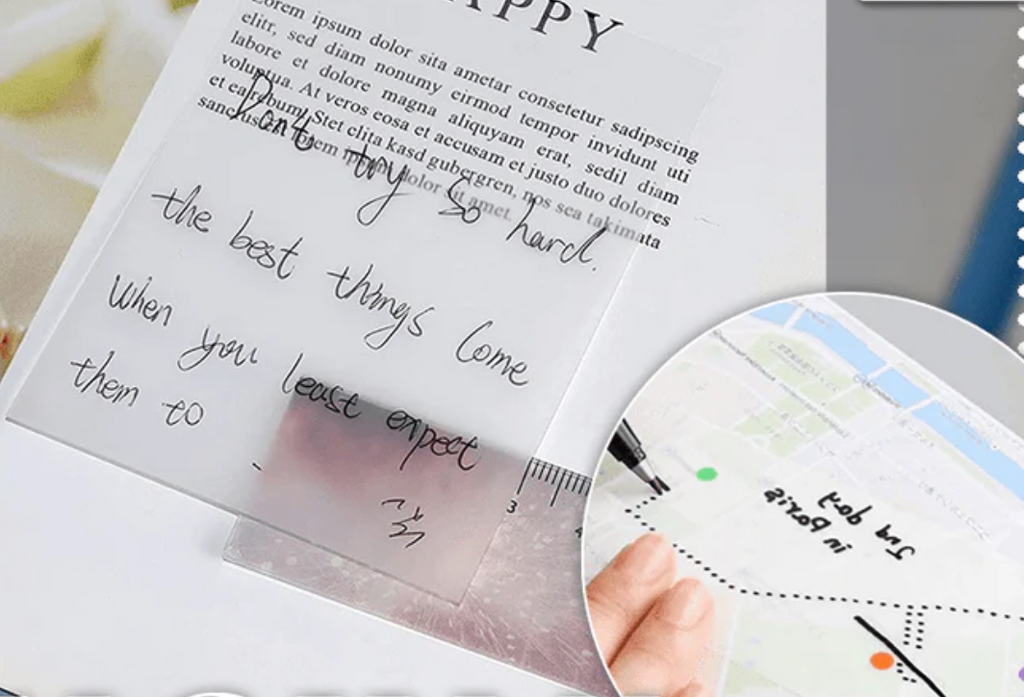 APPY
Lorem ipsum dolor sita ametar consetetur sadipscing
elitr, sed diam nonumy eirmod tempor invidunt uti
labore et dolore magna aliquyam erat, sedil diam
voluptua. At veros eosa et accusam et justo duo dolores
et ea rebum. Stet clita kasd gubergren, nos sea takimata
sanctus est lorem ipsum dolor sit amet.
Don't try so hard.
the best things come
when you least expect
them to
3
day
in paris